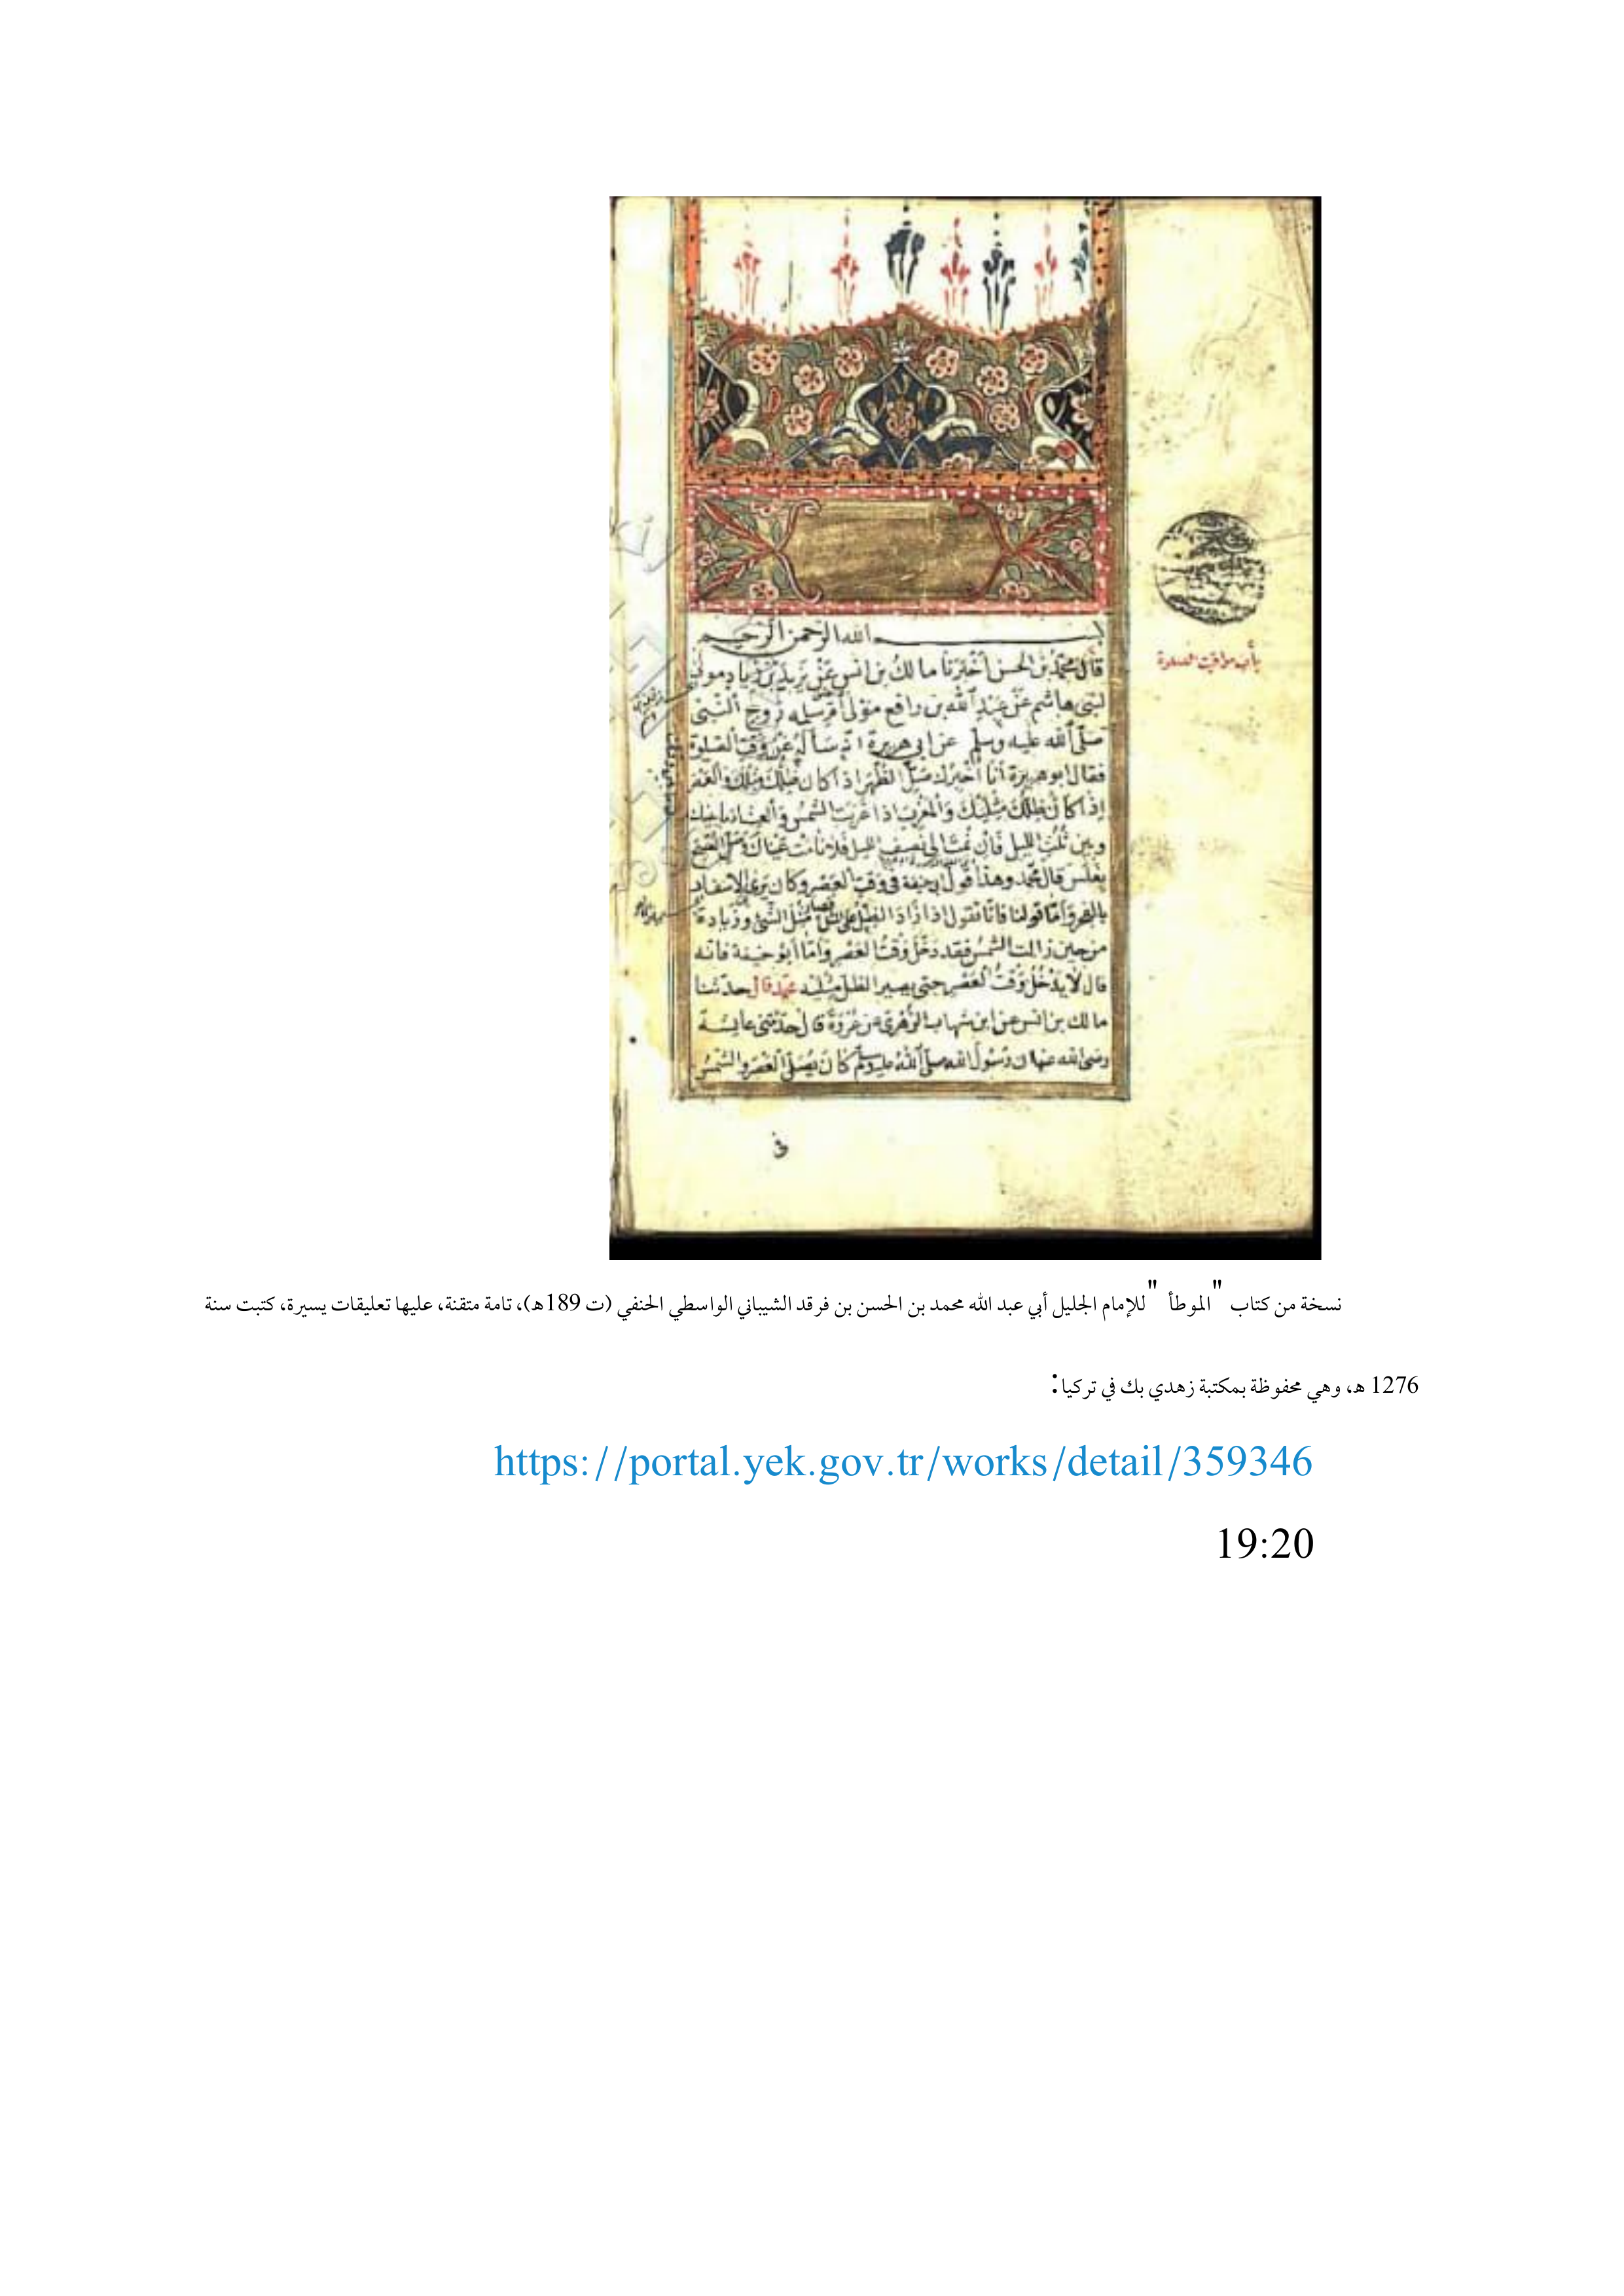 بسم الله الرحمن الرحيم
قال محمد بن الحسن أخبرنا مالك بن انس عن يزيد بن زياد مولى
لبنى هاشم عن عبد الله بن رافع مولى أم سلمه زوج النبى
صلى الله عليه وسلم عن ابى هريرة انه سأله عن وقت الصلوة
باب مواقيت الصلوة
فقال ابو هريرة أنا أخبرك صل الظهر اذا كان ظلك مثلك والعصر
إذا كان ظلك مثليك والمغرب اذا غربت الشمس والعشاء ما بينك
وبين ثلث الليل فان نمت الى نصف الليل فلا نامت عيناك وصل الصبح
بغلس قال محمد وهذا قول ابى حنيفة فى وقت العصر وكان يرى الاسفار
بالفجر وأما قولنا فانا نقول اذا زاد الظل على المثل فصار مثل الشئ وزيادة
من حين زالت الشمس فقد دخل وقت العصر وأما أبو حنيفة فانه
قال لا يدخل وقت العصر حتى يصير الظل مثليه محمد قال حدثنا
مالك بن انس عن ابن شهاب الزهرى عن عروة قال حدثتنى عايشة
رضى الله عنها ان رسول الله صلى الله عليه وسلم كان يصلى العصر والشمس
فى
نسخة من كتاب "الموطأ" للإمام الجليل أبي عبد الله محمد بن الحسن بن فرقد الشيباني الواسطي الحنفي (ت 189هـ)، تامة متقنة، عليها تعليقات يسيرة، كتبت سنة
1276 هـ، وهي محفوظة بمكتبة زهدي بك في تركيا:
https://portal.yek.gov.tr/works/detail/359346
19:20